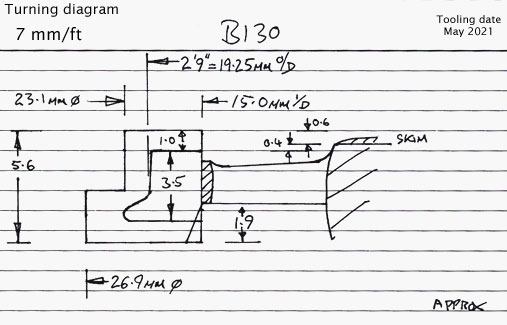 Turning diagram
7 mm/ft
B130
Tooling date
May 2021
2'9" = 19.25MM O/D
23.1MM Ø
15.0MM I/D
0.6
1.0
0.4
SKIM
5.6
3.5
1.9
26.9MM Ø
APPROX